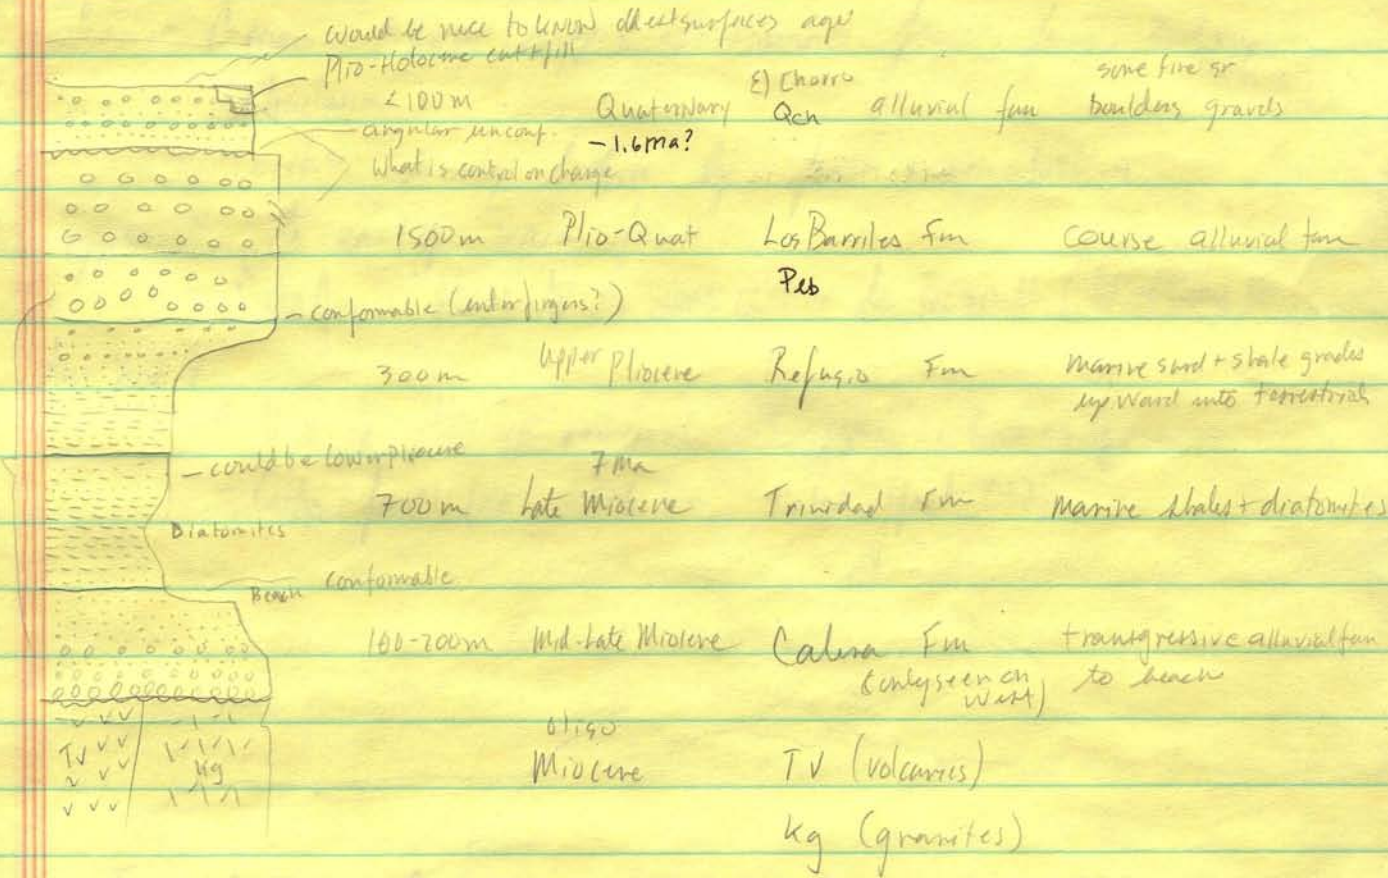 would be nice to know oldest surfaces age
Plio-Holocene cut+fill
<100m Quaternary El Chorro alluvial fan some fine gr
Qch boulders gravels
angular unconf.
~1.6 Ma?
What is control on change
1500m Plio-Quat Los Barriles Fm course alluvial fan
conformable (interfingers?)
300m Upper Pliocene Refugio Fm marine sand + shale grades
upward into terrestrial
could be lower pliocene
7 Ma
700m Late Miocene Trinidad Fm marine shales + diatomites
Diatomites
Beach conformable
100-200m Mid-Late Miocene Fm transgressive alluvial fan
(only seen on to beach
West)
oligo
TV Kg Miocene TV (volcanics)
Kg (granites)